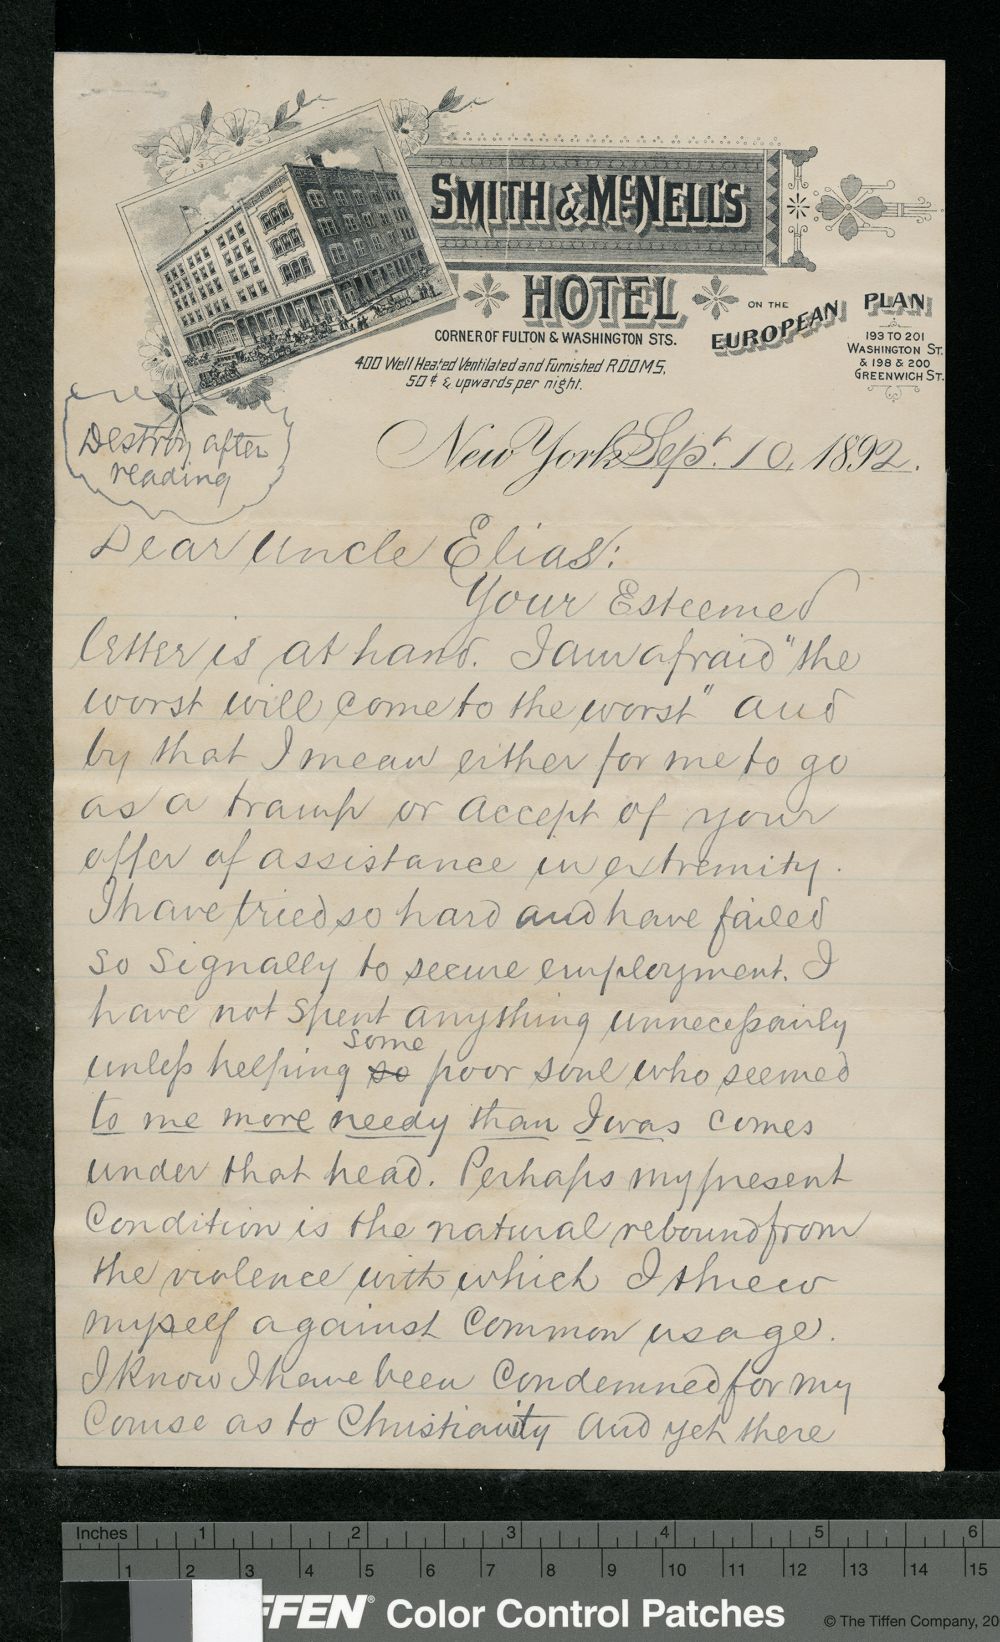 SMITH & McNELL'S
HOTEL
ON THE
EUROPEAN
PLAN
CORNER OF FULTON & WASHINGTON STS.
193 TO 201
WASHINGTON ST.
& 198 & 200
GREENWICH ST.
400 Well Heated Ventilated and Furnished ROOMS,
50¢ & upwards per night.
Destroy after
reading
New York Sept. 10, 1892.
Dear Uncle Elias:
Your Esteemed
letter is at hand. I am afraid "the
worst will come to the worst" and
by that I mean either for me to go
as a tramp or accept of your
offer of assistance in extremity.
I have tried so hard and have failed
so signally to secure employment. I
have not spent anything unnecessarily
some
unless helping so poor soul who seemed
to me more needy than I was comes
under that head. Perhaps my present
Condition is the natural rebound from
the violence with which I threw
myself against Common usage.
I know I have been Condemned for my
Course as to Christianity and yet there
Inches 1 2 3 4 5 6
1 2 3 4 5 6 7 8 9 10 11 12 13 14 15
FFEN® Color Control Patches
© The Tiffen Company, 20